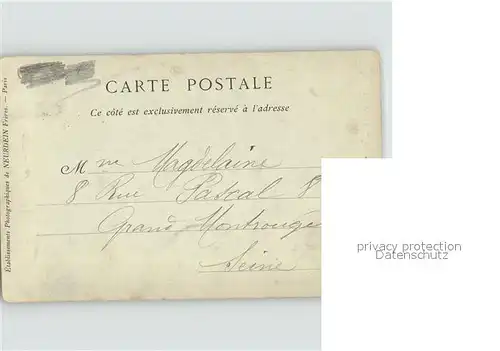 CARTE POSTALE
Ce côté est exclusivement réservé à l'adresse
Mme Magdelaine
8 Rue Pascal 8
Grand Montrouge
Seine
Etablissements Photographiques de NEURDEIN Frères. — Paris
privacy protection
Datenschutz